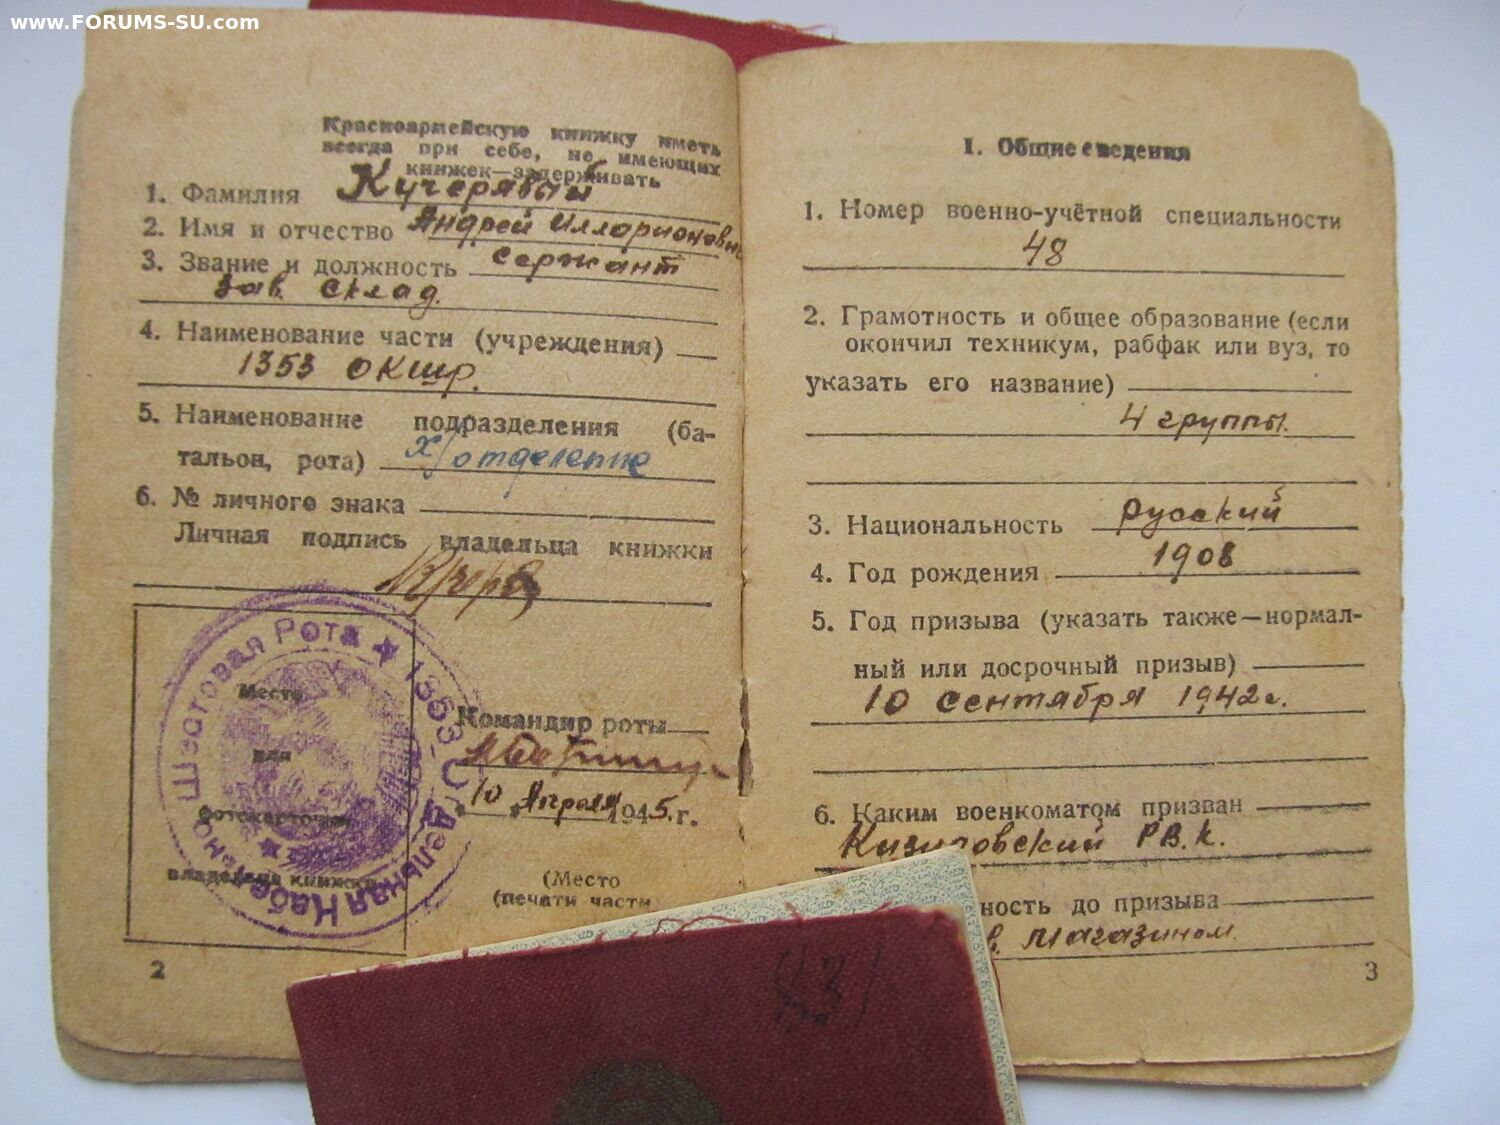 www.FORUMS-SU.com
Красноармейскую книжку иметь
всегда при себе, не имеющих
книжек—задерживать
1. Фамилия Кучерявый
2. Имя и отчество Андрей Илларионович
3. Звание и должность сержант
зав. склад.
4. Наименование части (учреждения)
1353 окшр.
5. Наименование подразделения (ба-
тальон, рота) х/отделение
6. № личного знака
Личная подпись владельца книжки
Шестовая Рота ★ 1353 Отдельная Кабельно ★
Место
для
фотокарточки
владельца книжки
Командир роты
10 Апреля 1945 г.
(Место
(печати части
2
I. Общие сведения
1. Номер военно-учётной специальности
48
2. Грамотность и общее образование (если
окончил техникум, рабфак или вуз, то
указать его название)
4 группы.
3. Национальность русский
4. Год рождения 1908
5. Год призыва (указать также—нормал-
ный или досрочный призыв)
10 сентября 1942г.
6. Каким военкоматом призван
РВ.К.
ность до призыва
в. магазином
3
831